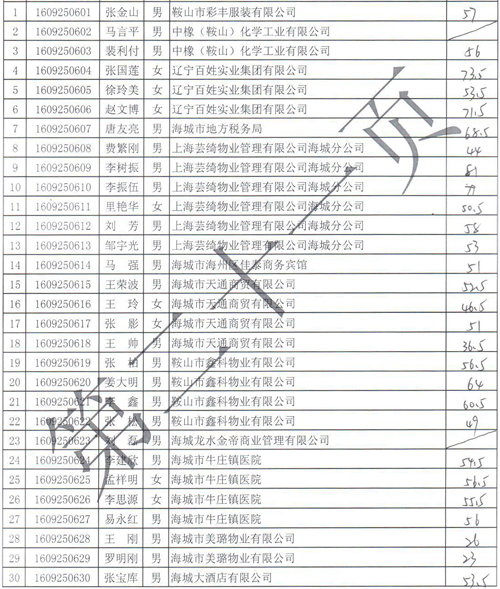 1 1609250601 张金山 男 鞍山市彩丰服装有限公司 57
2 1609250602 马言平 男 中橡（鞍山）化学工业有限公司
3 1609250603 裴利付 男 中橡（鞍山）化学工业有限公司 56
4 1609250604 张国莲 女 辽宁百姓实业集团有限公司 73.5
5 1609250605 徐玲美 女 辽宁百姓实业集团有限公司 53.5
6 1609250606 赵文博 女 辽宁百姓实业集团有限公司 71.5
7 1609250607 唐友亮 男 海城市地方税务局 68.5
8 1609250608 费繁刚 男 上海芸绮物业管理有限公司海城分公司 44
9 1609250609 李树振 男 上海芸绮物业管理有限公司海城分公司 81
10 1609250610 李振伍 男 上海芸绮物业管理有限公司海城分公司
11 1609250611 里艳华 女 上海芸绮物业管理有限公司海城分公司 50.5
12 1609250612 刘 芳 男 上海芸绮物业管理有限公司海城分公司 58
13 1609250613 邹宇光 男 上海芸绮物业管理有限公司海城分公司 53
14 1609250614 马 强 男 海城市海州区佳泰商务宾馆 51
15 1609250615 王荣波 男 海城市天通商贸有限公司 52.5
16 1609250616 王 玲 女 海城市天通商贸有限公司 46.5
17 1609250617 张 影 女 海城市天通商贸有限公司 51
18 1609250618 王 帅 男 海城市天通商贸有限公司 36.5
19 1609250619 张 柏 男 鞍山市鑫科物业有限公司 56.5
20 1609250620 姜大明 男 鞍山市鑫科物业有限公司 64
21 1609250621 鑫 男 鞍山市鑫科物业有限公司 60.5
22 1609250622 张 松 男 鞍山市鑫科物业有限公司 49
23 1609250623 刘 磊 男 海城龙水金帝商业管理有限公司
24 1609250624 李建欣 男 海城市牛庄镇医院 54.5
25 1609250625 孟祥明 女 海城市牛庄镇医院 56.5
26 1609250626 李思源 女 海城市牛庄镇医院 55.5
27 1609250627 易永红 男 海城市牛庄镇医院 56
28 1609250628 王 刚 男 海城市美璐物业有限公司 26
29 1609250629 罗明刚 男 海城市美璐物业有限公司 23
30 1609250630 张宝库 男 海城大酒店有限公司 53.5
第二十一页